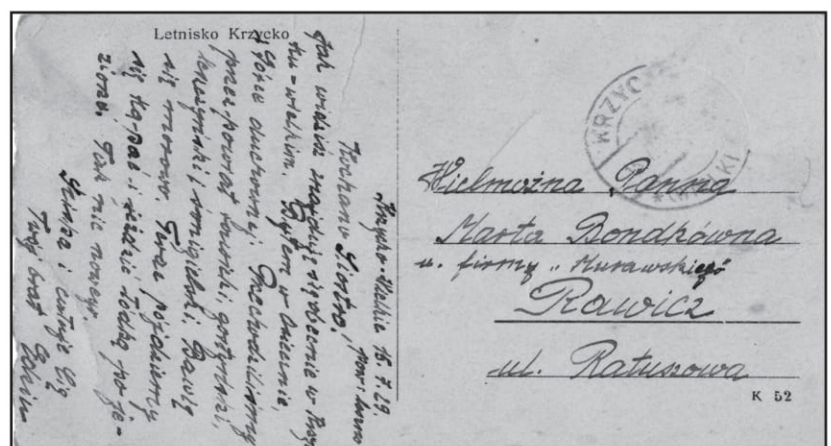 Letnisko Krzycko
Krzycko-Wielkie 15.7.29.
Kochana Siostro,
Jak widzisz znajduję się obecnie w Krzy-
cku-wielkim. Byłem w Gnieźnie,
Górce duchownej. Przechodziliśmy
przez powiat gostyński,
leszczyński, śmigielski. Bawię
się morowo. Teraz pójdziemy
się kąpać i jeździć łódką po je-
ziorze. Tak nic nowego.
Ściska i całuje Cię
Twój brat
KRZYC
Wielmożna Panna
Marta Bondkówna
u. firmy „Murawskiego
Rawicz
ul. Ratuszowa
K 52